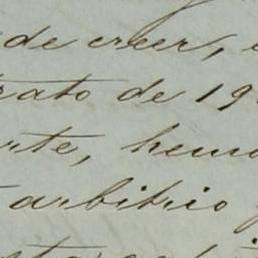 de creer,
trato de 19
rte, hemo
arbitrio